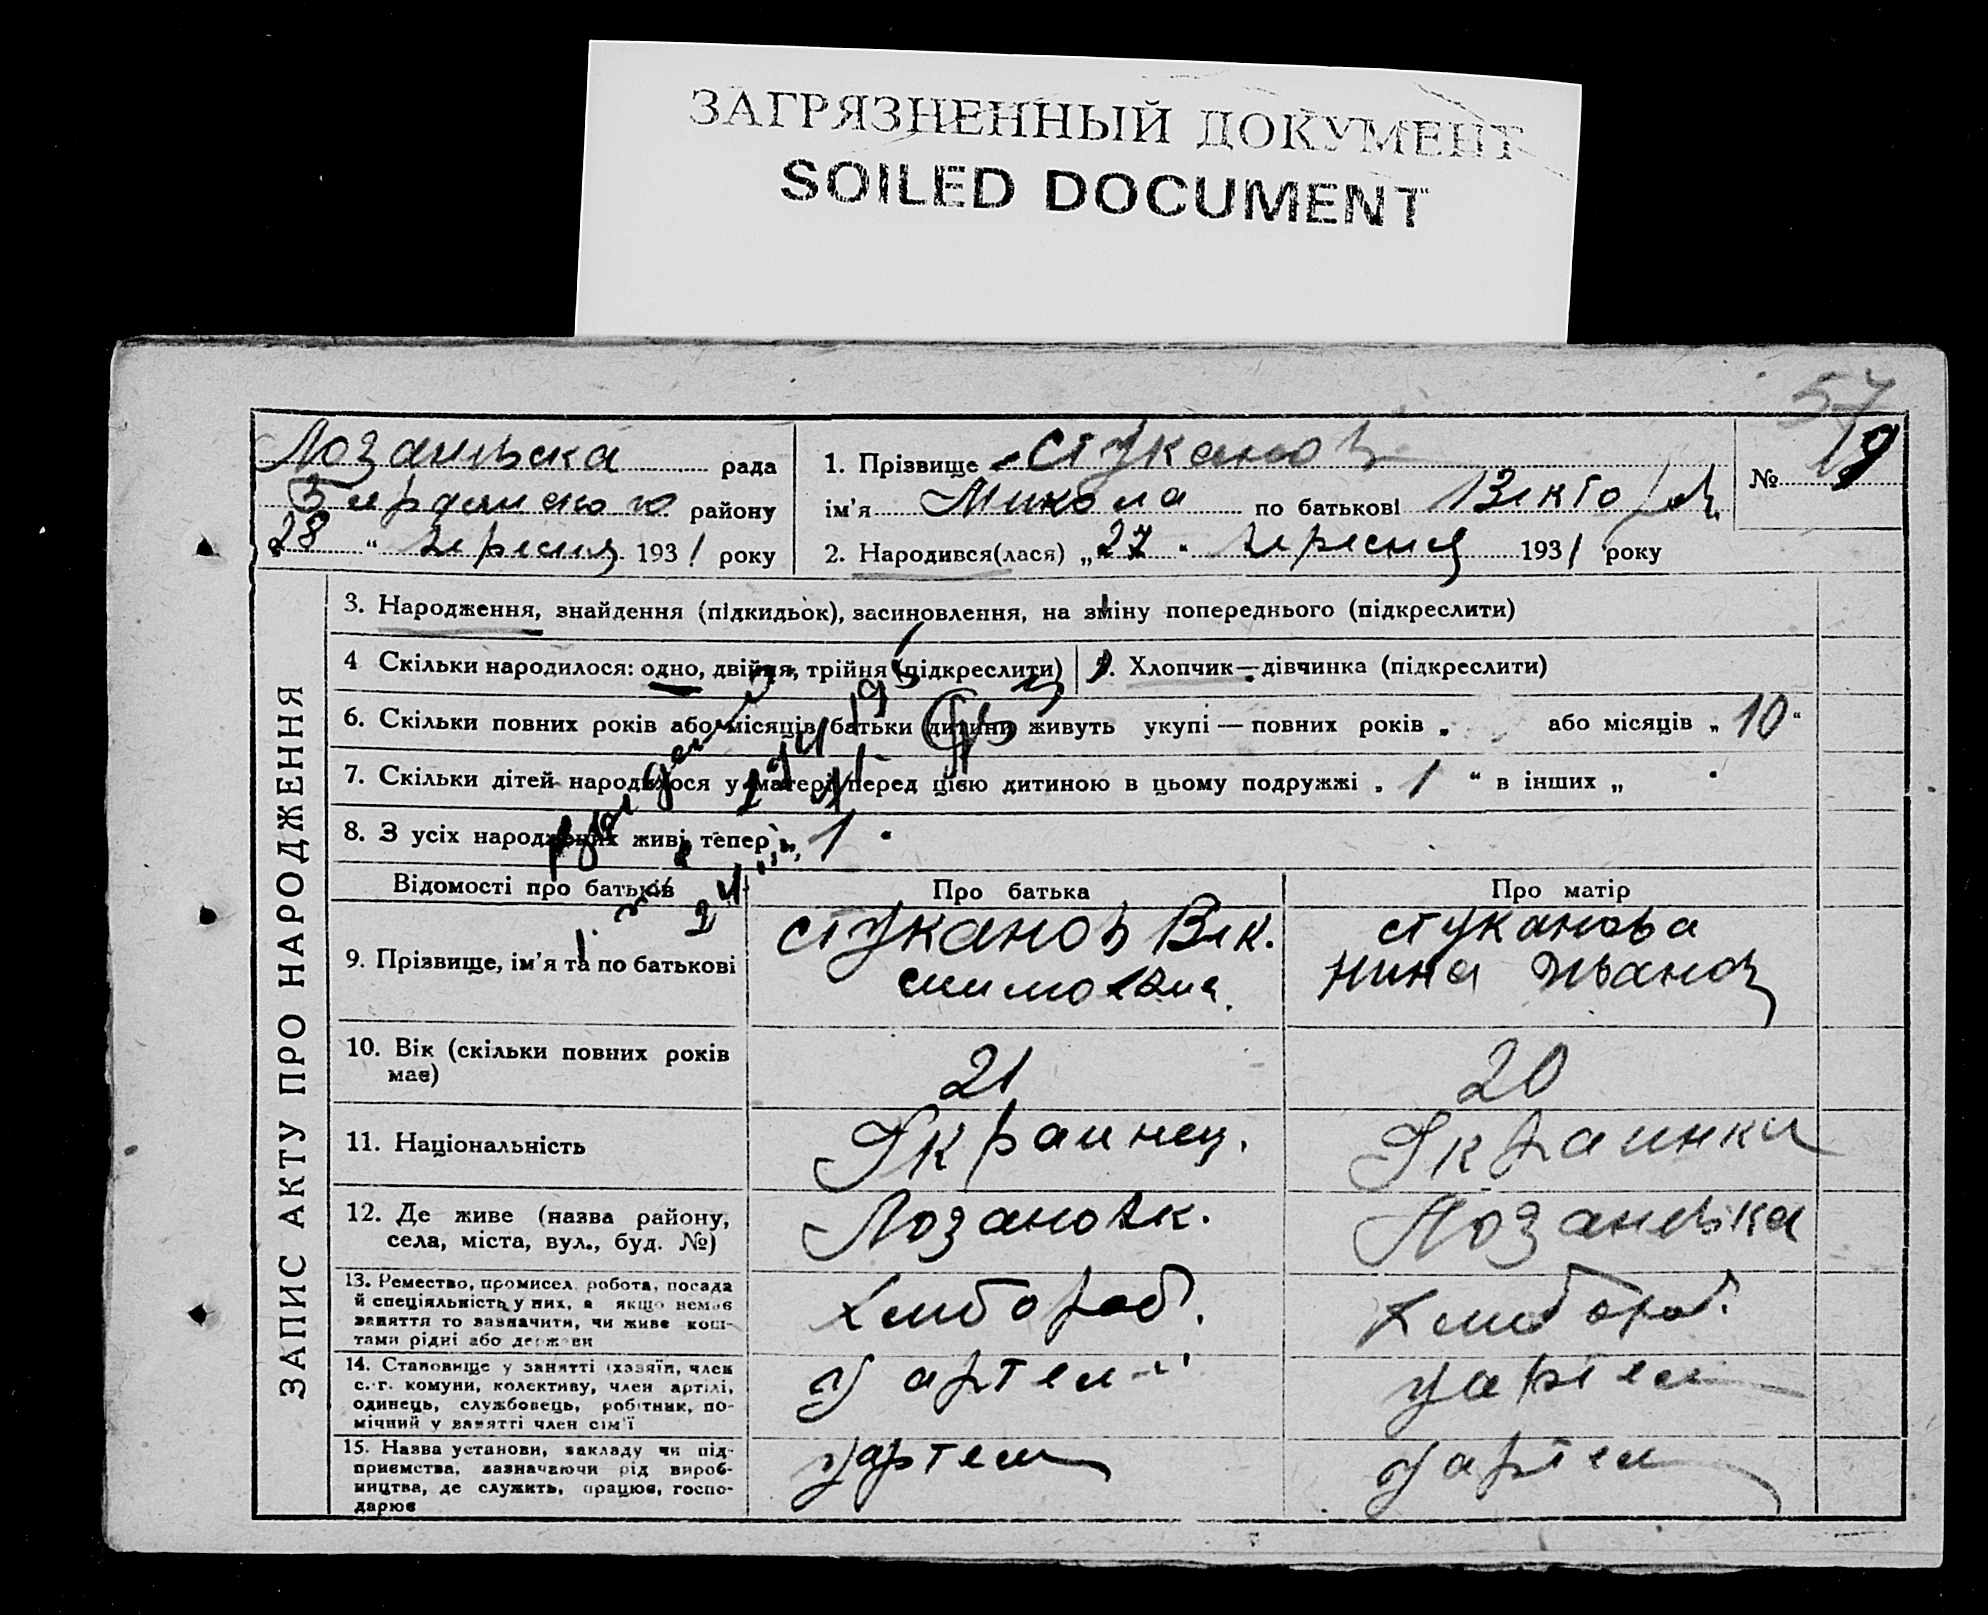 ЗАГРЯЗНЕННЫЙ ДОКУМЕНТ
SOILED DOCUMENT
57
рада
району
28 " вересня 1931 року
1. Прізвище Стуканов
ім'я Микола по батькові Вікторов.
2. Народився(лася) „27 " вересня 1931 року
№ 19
ЗАПИС АКТУ ПРО НАРОДЖЕННЯ
3. Народження, знайдення (підкидьок), засиновлення, на зміну попереднього (підкреслити)
4 Скільки народилося: одно, двійня, трійня (підкреслити)
Хлопчик — дівчинка (підкреслити)
6. Скільки повних років або місяців батьки дитини живуть укупі — повних років „ або місяців „ 10 "
7. Скільки дітей народилося у матері перед цією дитиною в цьому подружжі „ 1 " в інших „
8. З усіх народжених живі тепер „ 1
Відомості про батьків
Про батька
Про матір
9. Прізвище, ім'я та по батькові
Стуканов Вік.
Стуканова
Нина Иванов
10. Вік (скільки повних років
має)
21
20
11. Національність
Украинец.
Украинка
12. Де живе (назва району,
села, міста, вул., буд. №)
Лозановк.
Лозанівка
13. Ремество, промисел, робота, посада
й спеціяльність у них, а якщо немає
заняття то зазначити, чи живе кош-
тами рідні або держави
Хлибороб.
Хлибороб.
14. Становище у занятті (хазяїн, член
с.-г. комуни, колективу, член артілі,
одинець, службовець, робітник, по-
мічний у занятті член сім'ї
у артели
у артели
15. Назва установи, закладу чи під-
приємства, зазначаючи рід вироб-
ництва, де служить, працює, госпо-
дарює
у артели
у артели